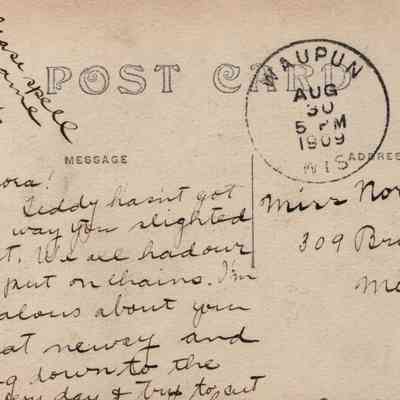 ease spell
name
POST CARD
WAUPUN
AUG
30
5 PM
1909
WIS
MESSAGE
ADDRESS
ora!
Teddy hasn't got
way you slighted
t. We all had our
put on chains. I'm
ealous about you
at neway and
g down to the
ery day & try to cut
Miss Nor
309 Br
Me